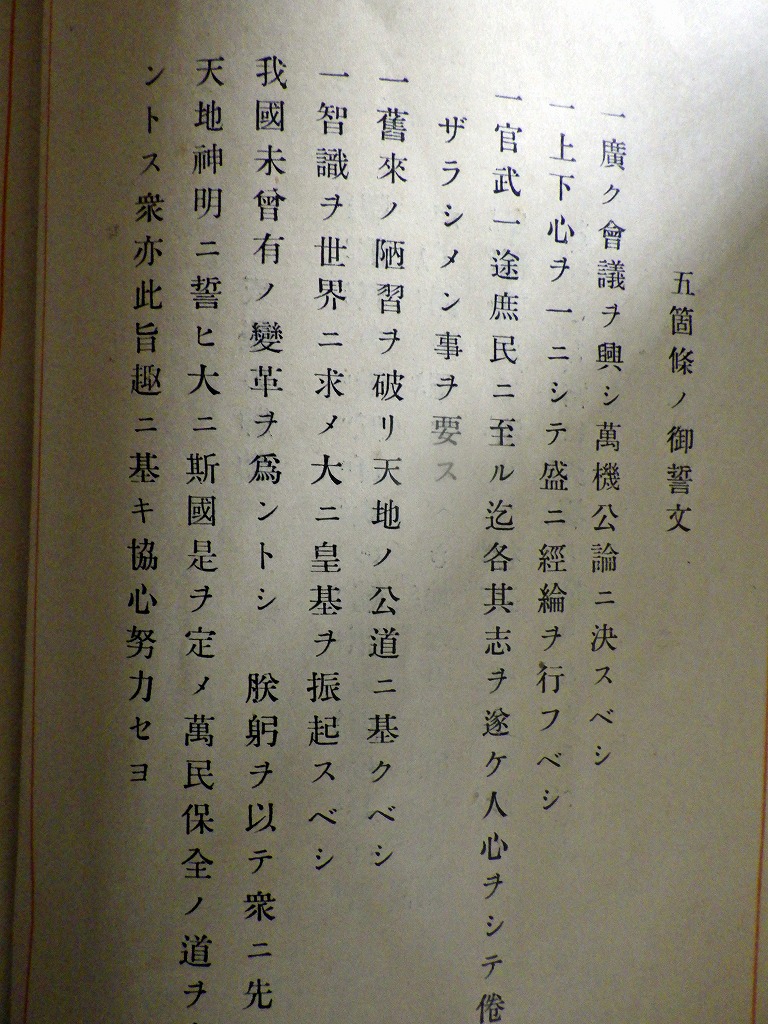 五箇條ノ御誓文
一廣ク會議ヲ興シ萬機公論ニ決スベシ
一上下心ヲ一ニシテ盛ニ經綸ヲ行フベシ
一官武一途庶民ニ至ル迄各其志ヲ遂ケ人心ヲシテ倦
ザラシメン事ヲ要ス
一舊來ノ陋習ヲ破リ天地ノ公道ニ基クベシ
一智識ヲ世界ニ求メ大ニ皇基ヲ振起スベシ
我國未曾有ノ變革ヲ爲ントシ 朕躬ヲ以テ衆ニ先
天地神明ニ誓ヒ大ニ斯國是ヲ定メ萬民保全ノ道ヲ
ントス衆亦此旨趣ニ基キ協心努力セヨ